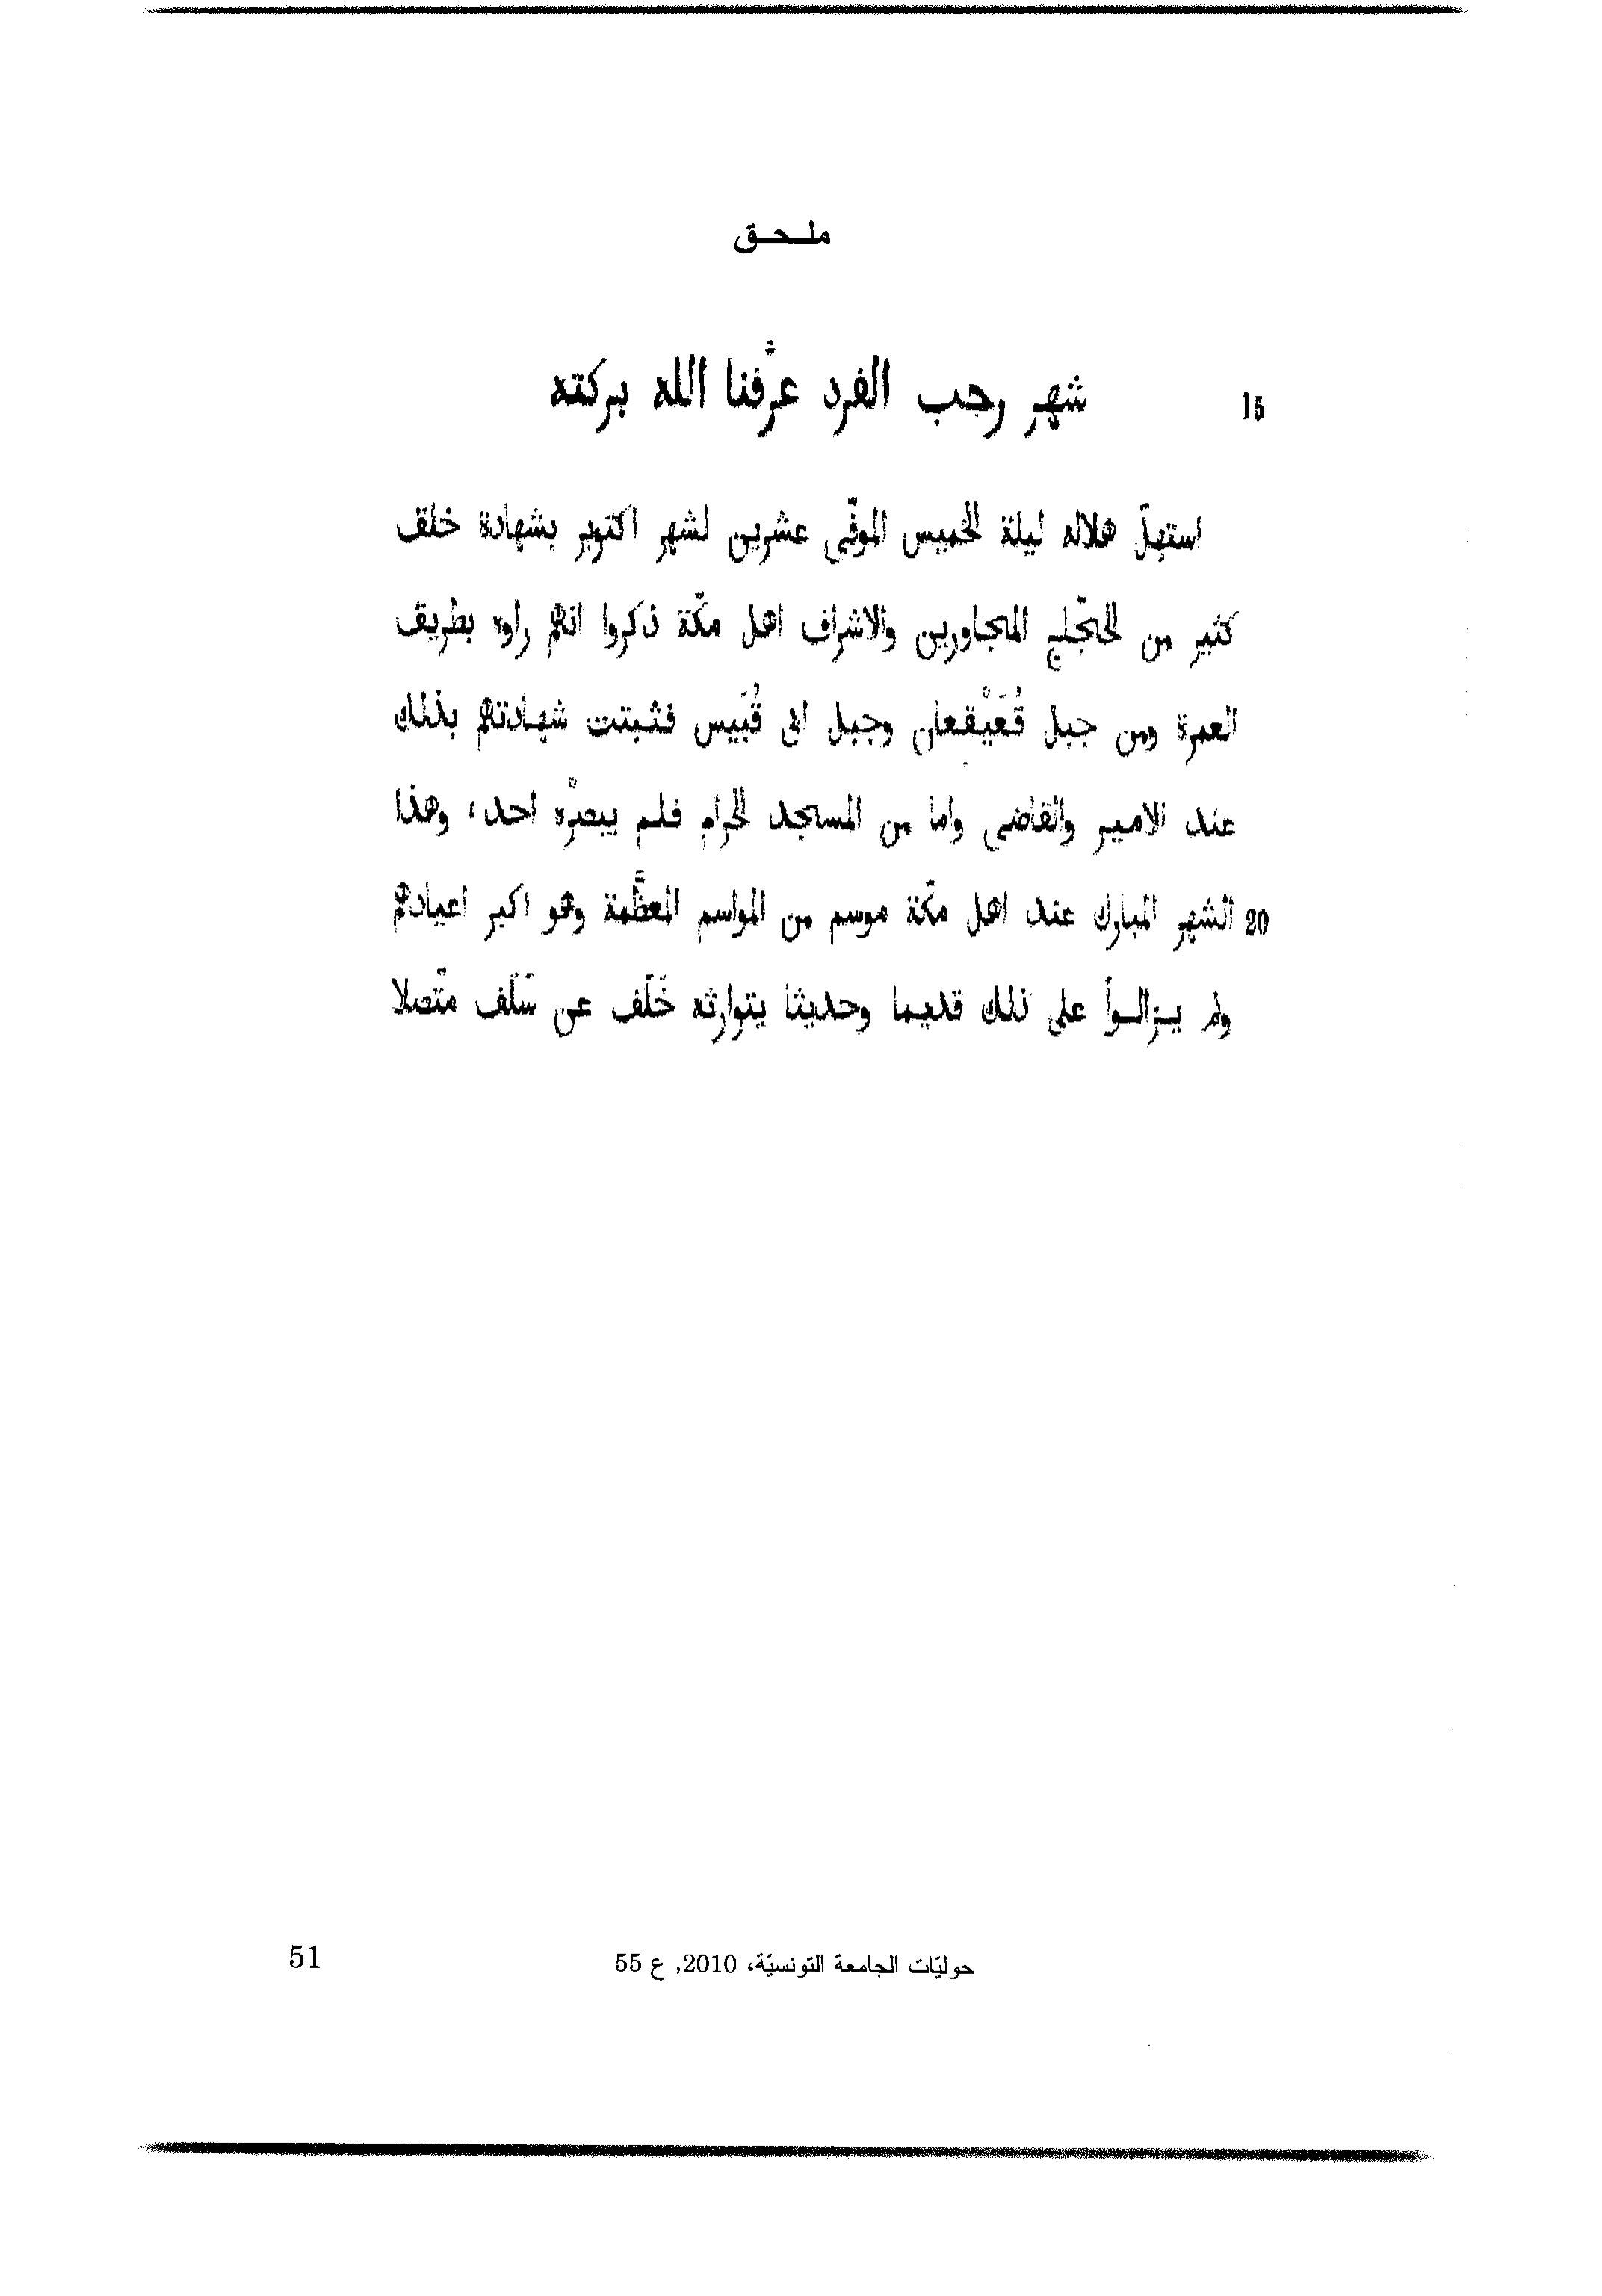 ملحق
15 شهر رجب الفرد عرَّفنا الله بركته
استهلّ هلاله ليلة الخميس الموفّى عشرين لشهر اكتوبر بشهادة خلق
كثير من الحجّاج المجاورين والاشراف اهل مكّة ذكروا انهم راوه بطريق
العمرة ومن جبل قُعَيْقعان وجبل ابى قُبَيس فثبتت شهادتهم بذلك
عند الامير والقاضى واما من المسجد الحرام فلم يبصرْه احد، وهذا
20 الشهر المبارك عند اهل مكّة موسم من المواسم المعظَّمة وهو اكبر اعيادهم
ولم يزالوا على ذلك قديما وحديثا يتوارثه خَلَف عن سَلَف متّصلا
حوليّات الجامعة التونسيّة، 2010, ع 55
51